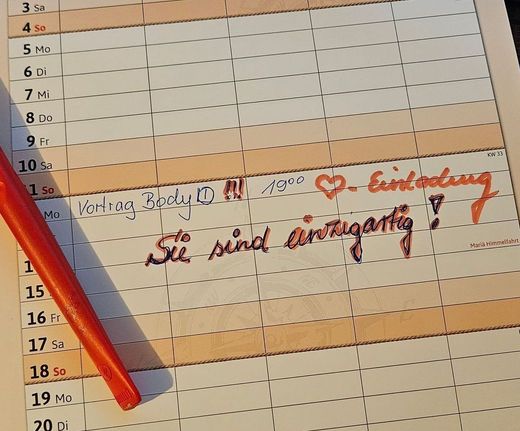 3 Sa
4 So
5 Mo
6 Di
7 Mi
8 Do
9 Fr
10 Sa
KW 33
1 So
Mo Vortrag Body !!! 19⁰⁰ ♡- Einladung
Sie sind einzigartig !
1
Mariä Himmelfahrt
15
16 Fr
17 Sa
18 So
19 Mo
20 Di